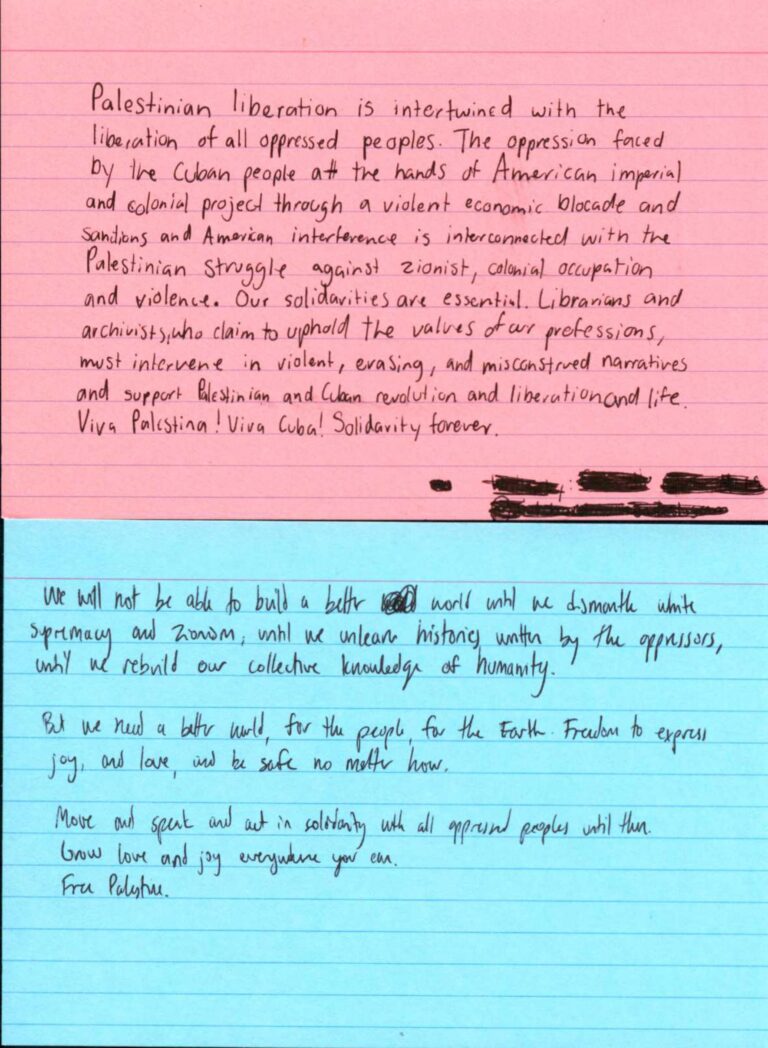 Palestinian liberation is intertwined with the
liberation of all oppressed peoples. The oppression faced
by the Cuban people att the hands of American imperial
and colonial project through a violent economic blocade and
sanctions and American interference is interconnected with the
Palestinian struggle against zionist, colonial occupation
and violence. Our solidarities are essential. Librarians and
archivists, who claim to uphold the values of our professions,
must intervene in violent, erasing, and misconstrued narratives
and support Palestinian and Cuban revolution and liberation and life.
Viva Palestina! Viva Cuba! Solidarity forever.
We will not be able to build a better world until we dismantle white
supremacy and zionism, until we unlearn histories written by the oppressors,
until we rebuild our collective knowledge of humanity.
But we need a better world, for the people, for the Earth. Freedom to express
joy, and love, and be safe no matter how.
Move and speak and act in solidarity with all oppressed peoples until then.
Grow love and joy everywhere you can.
Free Palestine.